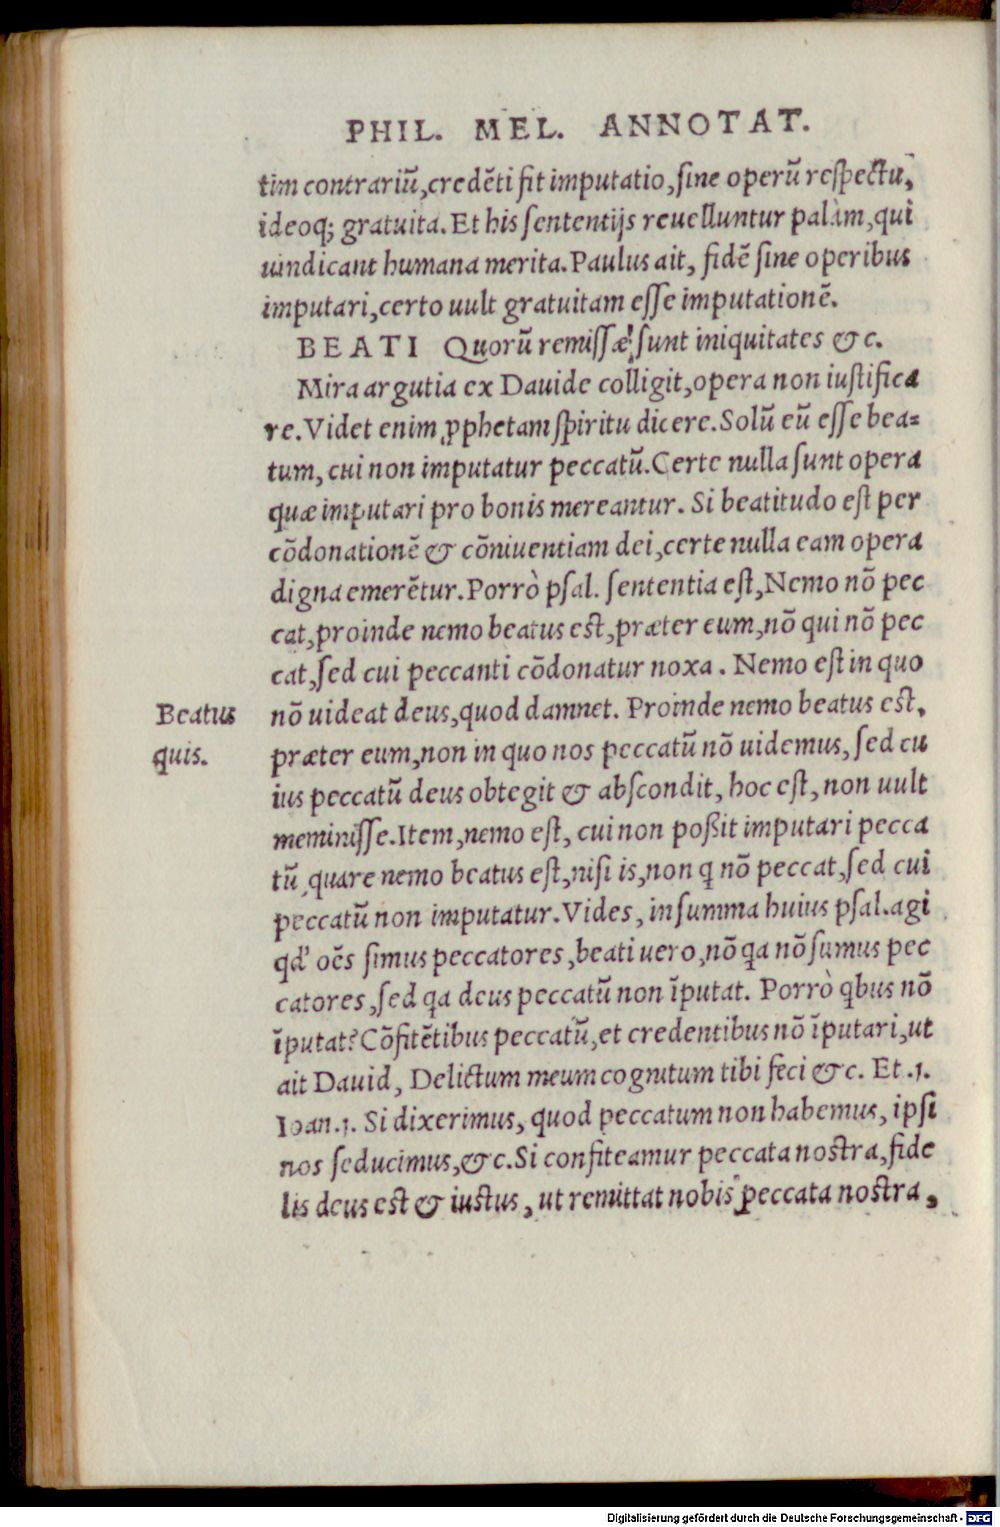 PHIL. MEL. ANNOTAT.
tim contrariũ,credẽti fit imputatio,sine operũ respectu,
ideoq; gratuita. Et his sententijs reuelluntur palàm,qui
uindicant humana merita. Paulus ait, fidẽ sine operibus
imputari,certo uult gratuitam esse imputationẽ.
BEATI Quorũ remissæ sunt iniquitates &c.
Mira argutia ex Dauide colligit,opera non iustifica
re. Videt enim ꝓphetam spiritu dicere. Solũ eũ esse bea=
tum, cui non imputatur peccatũ. Certe nulla sunt opera
quæ imputari pro bonis mereantur. Si beatitudo est per
cõdonationẽ & cõniuentiam dei,certe nulla eam opera
digna emerẽtur. Porrò psal. sententia est, Nemo nõ pec
cat,proinde nemo beatus est,præter eum,nõ qui nõ pec
cat,sed cui peccanti cõdonatur noxa. Nemo est in quo
Beatus
quis.
nõ uideat deus,quod damnet. Proinde nemo beatus est,
præter eum,non in quo nos peccatũ nõ uidemus, sed cu
ius peccatũ deus obtegit & abscondit, hoc est, non uult
meminisse. Item,nemo est, cui non poßit imputari pecca
tũ, quare nemo beatus est,nisi is,non q nõ peccat,sed cui
peccatũ non imputatur. Vides, in summa huius psal.agi
qd' oẽs simus peccatores,beati uero,nõ qa nõ sumus pec
catores,sed qa deus peccatũ non ĩputat. Porrò qbus nõ
ĩputat? Cõfitẽtibus peccatũ,et credentibus nõ ĩputari,ut
ait Dauid, Delictum meum cognitum tibi feci &c. Et .1.
Ioan.1. Si dixerimus, quod peccatum non habemus, ipsi
nos seducimus,&c. Si confiteamur peccata nostra, fide
lis deus est & iustus, ut remittat nobis peccata nostra,
Digitalisierung gefördert durch die Deutsche Forschungsgemeinschaft - DFG